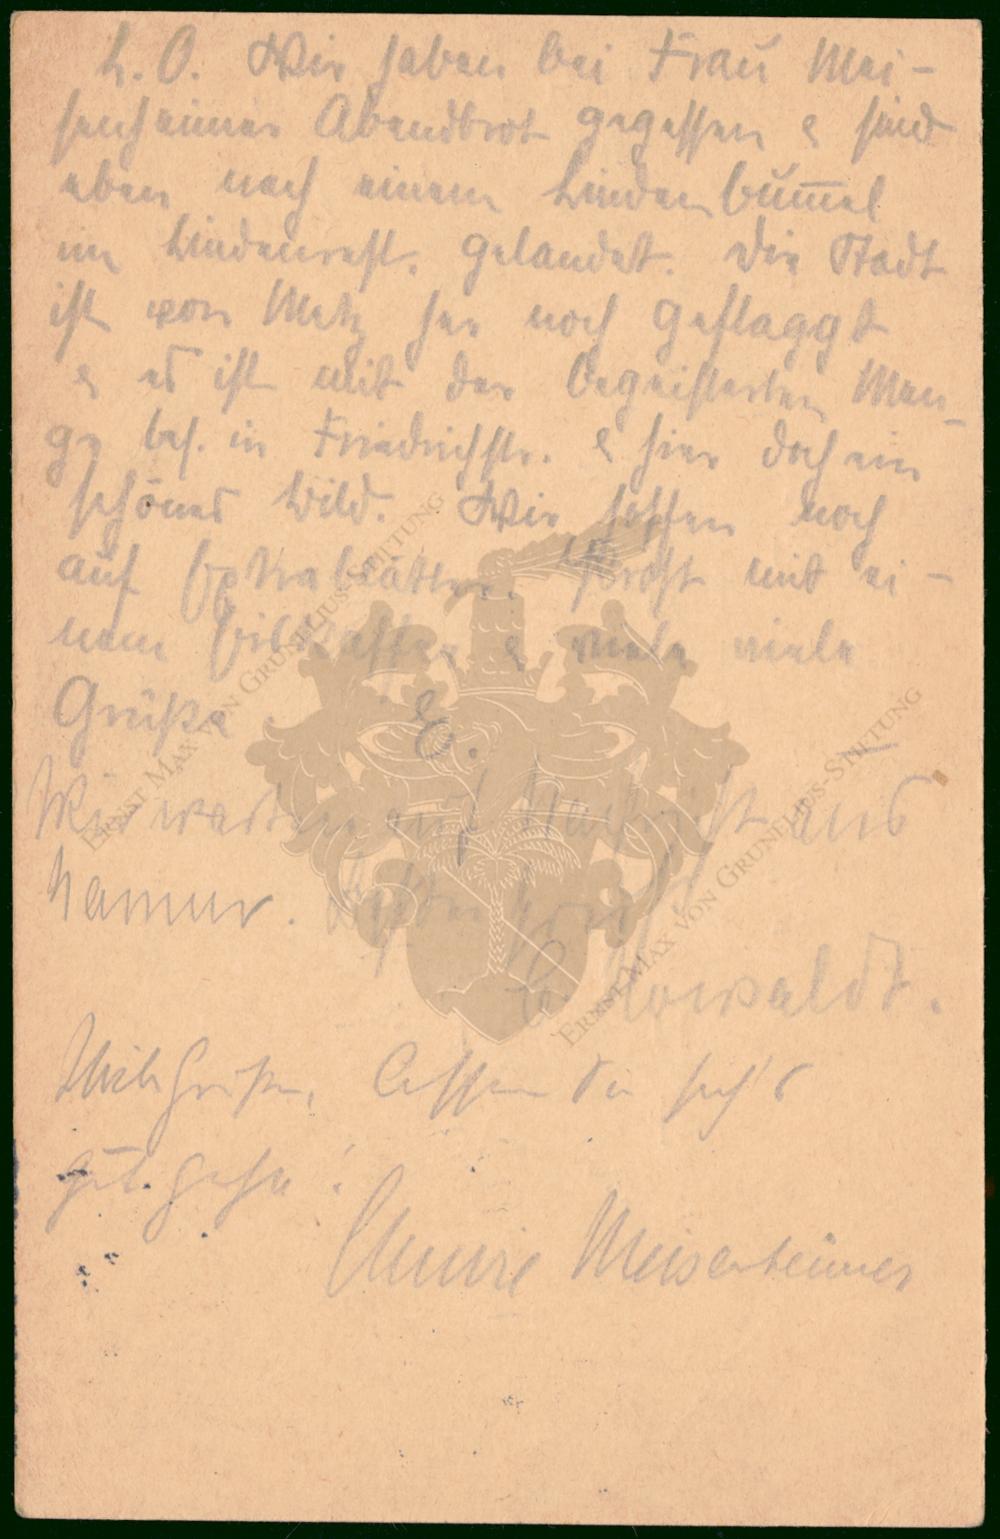 L. O. Wir haben bei Frau Mei-
senheimer Abendbrot gegessen & sind
eben nach einem Lindenbum̅el
im Lindenrest. gelandet. Die Stadt
ist von Metz her noch geflaggt
& es ist mit der begeisterten Men-
ge bes. in Friedrichstr. & hier doch ein
schönes Bild. Wir hoffen noch
auf Extrablätter. Prost mit ei-
nem & viele viele
Grüße E.
Wir warten auf Nachricht aus
Namur.
Howaldt.
Viele Grüße, lassen Sie sich's
gut gehn!
Annie Meisenheimer
ERNST MAX VON GRUNELIUS-STIFTUNG
ERNST MAX VON GRUNELIUS-STIFTUNG